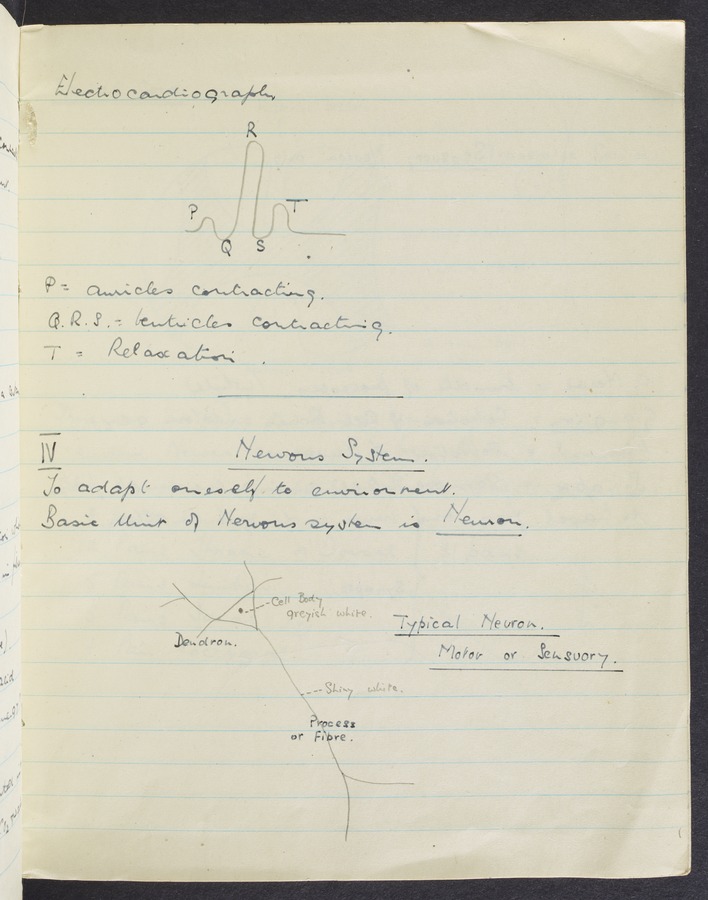 Electrocardiograph
R
P
T
Q S
P = auricles contracting.
Q.R.S. = Ventricles contracting.
T = Relaxation.
IV Nervous System.
To adapt oneself to environment.
Basic Unit of Nervous system is Neuron.
Cell Body
greyish white.
Dendron.
Typical Neuron.
Motor or Sensuory.
Shiny white.
Process
or Fibre.